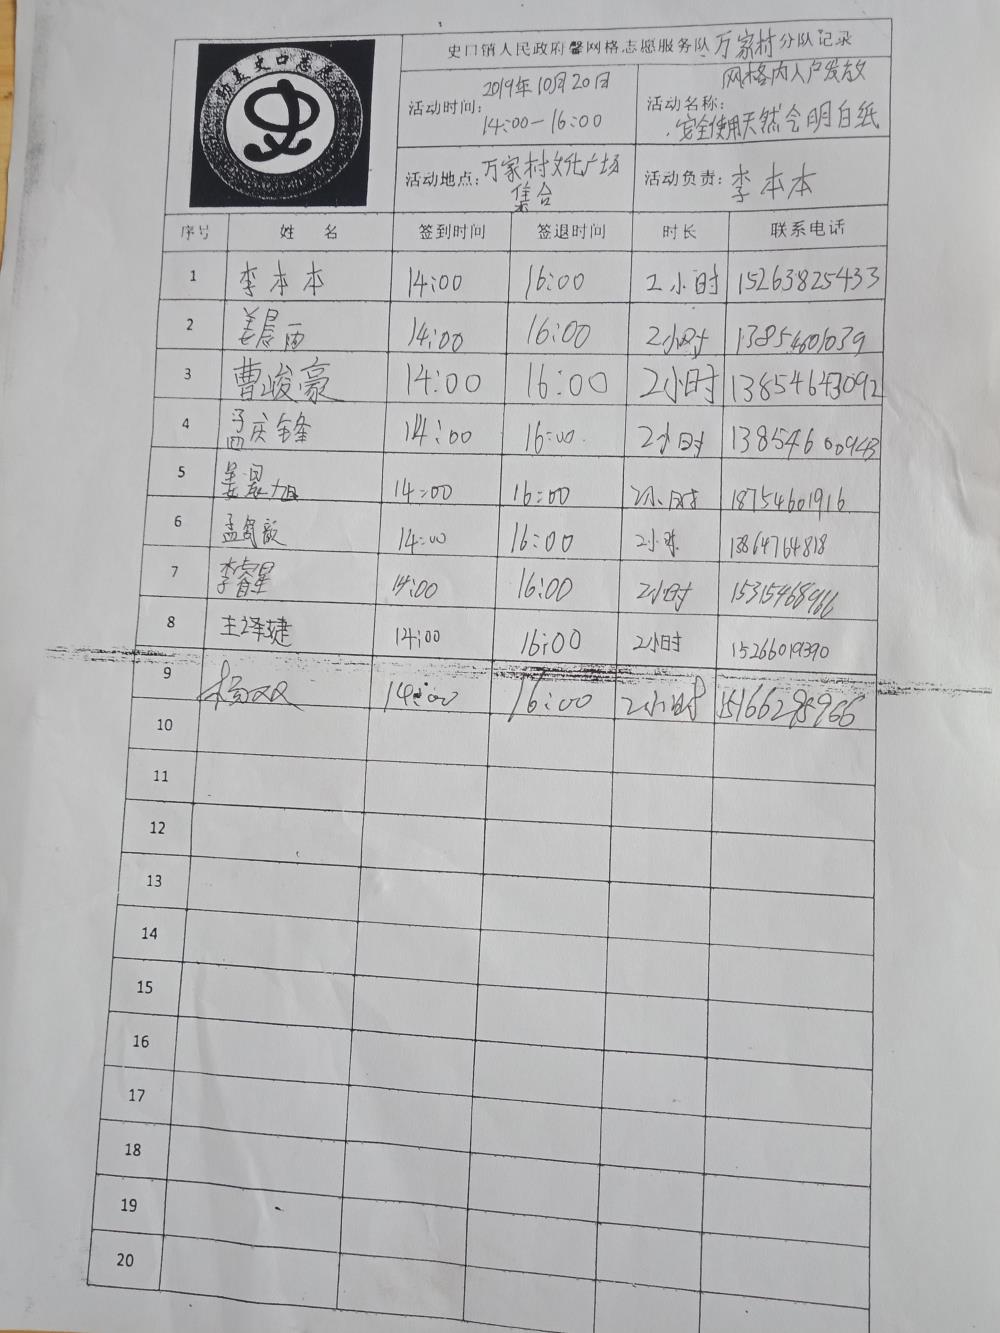 史口镇人民政府馨网格志愿服务队万家村分队记录
活动时间：2019年10月20日
14:00—16:00
活动名称：网格内入户发放
安全使用天然气明白纸
活动地点：万家村文化广场
集合
活动负责：李本本
序号 姓 名 签到时间 签退时间 时长 联系电话
1 李本本 14:00 16:00 2小时 15263825433
2 姜晨雨 14:00 16:00 2小时 13854601039
3 曹峻豪 14:00 16:00 2小时 13854643092
4 孟庆锋 14:00 16:00 2小时 13854600943
5 姜晨旭 14:00 16:00 2小时 18754601916
6 孟 14:00 16:00 2小时 13864764818
7 李睿星 14:00 16:00 2小时 15315468966
8 王译婕 14:00 16:00 2小时 15266019390
9 杨双双 14:00 16:00 2小时 15166298966
10
11
12
13
14
15
16
17
18
19
20